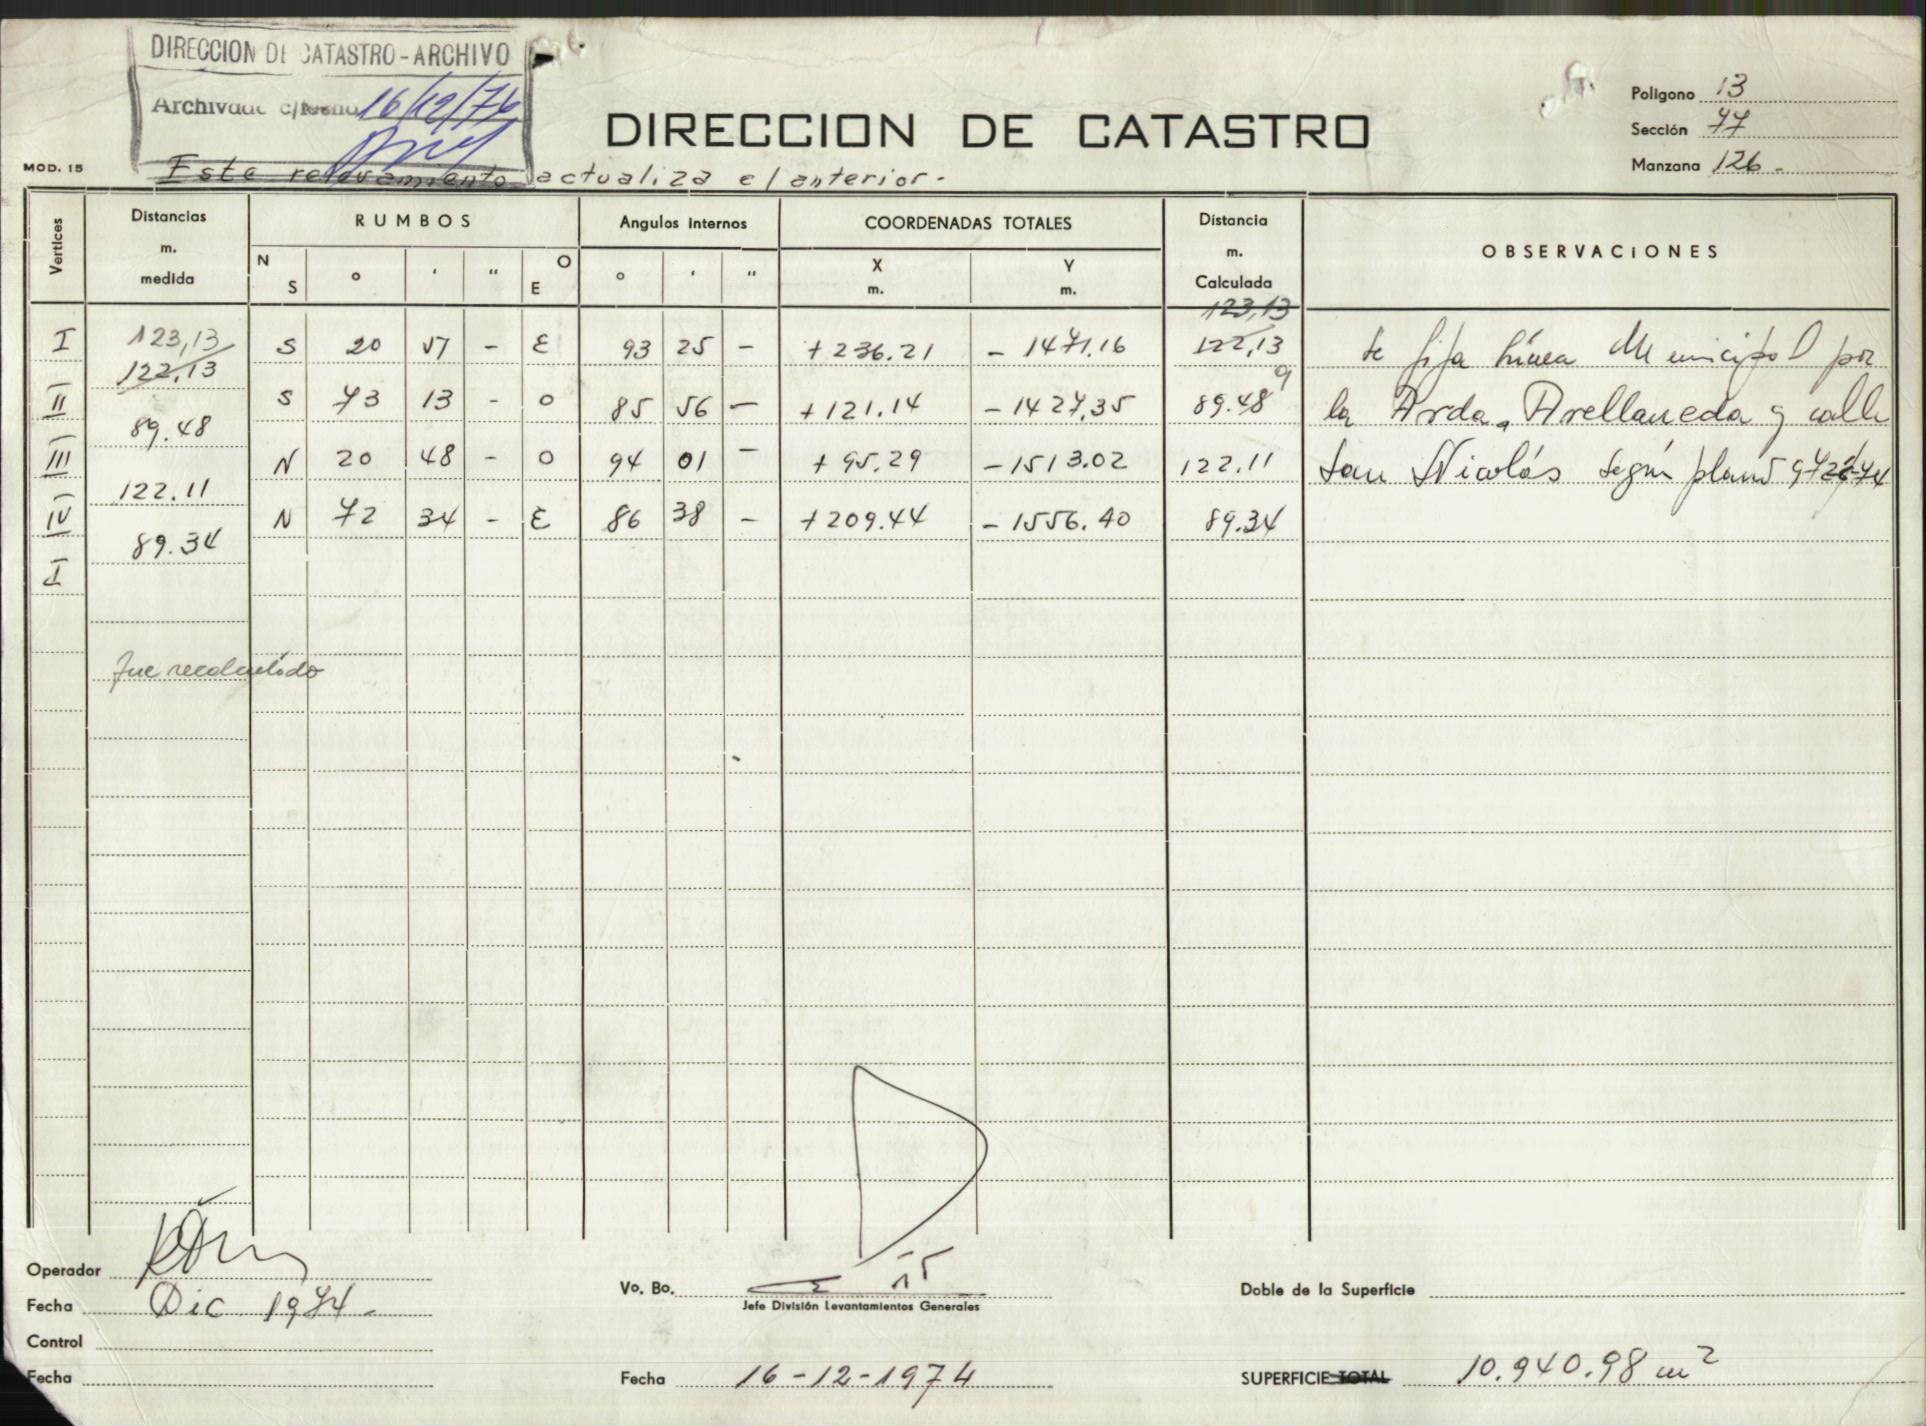 DIRECCION DE CATASTRO - ARCHIVO
Archivado c/fecha 16/12/74
DIRECCION DE CATASTRO
Polígono 13
Sección 77
Manzana 126 -
MOD. 15
Este relevamiento actualiza el anterior -
Vertices Distancias m. medida RUMBOS Angulos internos COORDENADAS TOTALES Distancia m. Calculada OBSERVACIONES
N S ° ' " O E ° ' " X m. Y m.
123,13
I 123,13 S 20 57 - E 93 25 - + 236.21 - 1471.16 122,13 Se fija Línea Municipal por
122,13
II S 73 13 - O 85 56 - + 121.14 - 1427,35 89.48 9 la Avda. Avellaneda y calle
89.48
III N 20 48 - O 94 01 - + 95.29 - 1513.02 122.11 San Nicolás según plano
122.11
IV N 72 34 - E 86 38 - + 209.44 - 1556.40 89.34
89.34
I
Fue recalculado
Operador
Fecha Dic 1974 -
Control
Fecha
Vo. Bo.
Jefe División Levantamientos Generales
Fecha 16-12-1974
Doble de la Superficie
SUPERFICIE TOTAL 10.940.98 m²